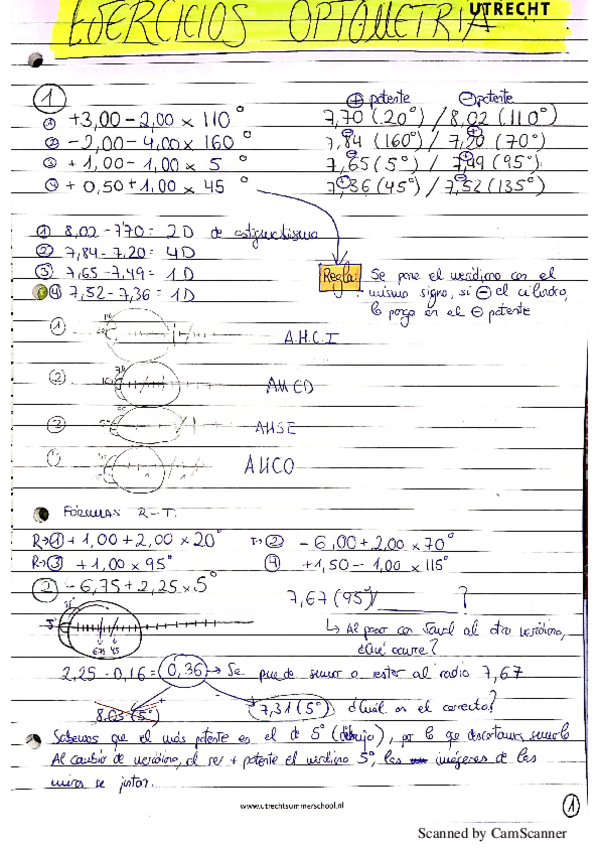 EJERCICIOS OPTOMETRIA
UTRECHT
① ⊕ potente ⊖ potente
① +3,00 - 2,00 x 110° 7,70 (20°) / 8,02 (110°)
② -2,00 - 4,00 x 160° 7,84 (160°) / 7,20 (70°)
③ +1,00 - 1,00 x 5° 7,65 (5°) / 7,49 (95°)
④ +0,50 + 1,00 x 45° 7,36 (45°) / 7,52 (135°)
① 8,02 - 7,70 = 2D de astigmatismo
② 7,84 - 7,20 = 4D
③ 7,65 - 7,49 = 1D
④ 7,52 - 7,36 = 1D
Regla: Se pone el meridiano con el
mismo signo, si ⊖ el cilindro,
lo pongo en el ⊖ potente
① A.H.C.I
② AMCD
③ AHSE
AHCO
FÓRMULAS R-T.
R→① +1,00 + 2,00 x 20° T→② -6,00 + 2,00 x 70°
R→③ +1,00 x 95° ④ +1,50 - 1,00 x 115°
② -6,75 + 2,25 x 5° 7,67 (95°) / ?
5°
↳ Al pasar con Javal al otro meridiano,
¿Qué ocurre?
2,25 · 0,16 = 0,36 → Se puede sumar o restar al radio 7,67
8,03 (5°) 7,31 (5°) ¿Cuál es el correcto?
Sabemos que el más potente es el de 5° (dibujo), por lo que descartamos sumarlo
Al cambio de meridiano, al ser + potente el meridiano 5°, las imágenes de las
miras se juntan.
www.utrechtsummerschool.nl
1
Scanned by CamScanner